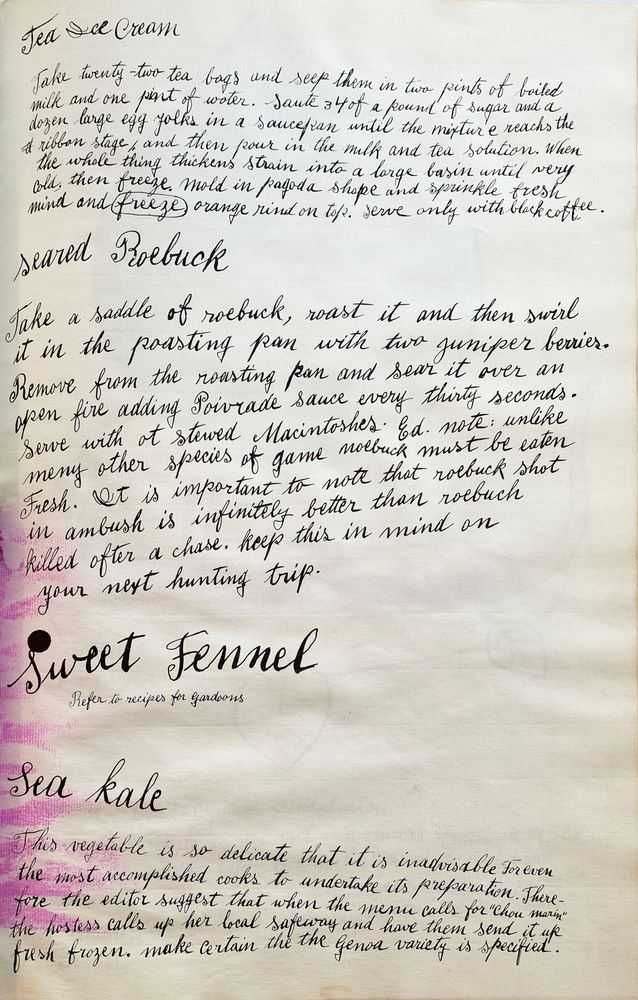 Tea Ice Cream
Take twenty-two tea bags and seep them in two pints of boiled
milk and one pint of water. Saute 3/4 of a pound of sugar and a
dozen large egg yolks in a saucepan until the mixture reachs the
ribbon stage, and then pour in the milk and tea solution. When
the whole thing thickens strain into a large basin until very
cold, then freeze. mold in pagoda shape and sprinkle fresh
mind and freeze orange rind on top. serve only with black coffee.
seared Roebuck
Take a saddle of roebuck, roast it and then swirl
it in the poasting pan with two juniper berries.
Remove from the roasting pan and sear it over an
open fire adding Poivrade sauce every thirty seconds.
Serve with ot stewed Macintoshes. Ed. note: unlike
meny other species of game noebuck must be eaten
Fresh. It is important to note that roebuck shot
in ambush is infinitely better than roebuch
killed ofter a chase. keep this in mind on
your next hunting trip.
Sweet Fennel
Refer to recipes for Gardoons
Sea kale
This vegetable is so delicate that it is inadvisable For even
the most accomplished cooks to undertake its preparation. There-
fore the editor suggest that when the menu calls for "chou marin"
the hostess calls up her local safeway and have them send it up
fresh frozen. make certain the the Genoa variety is specified.